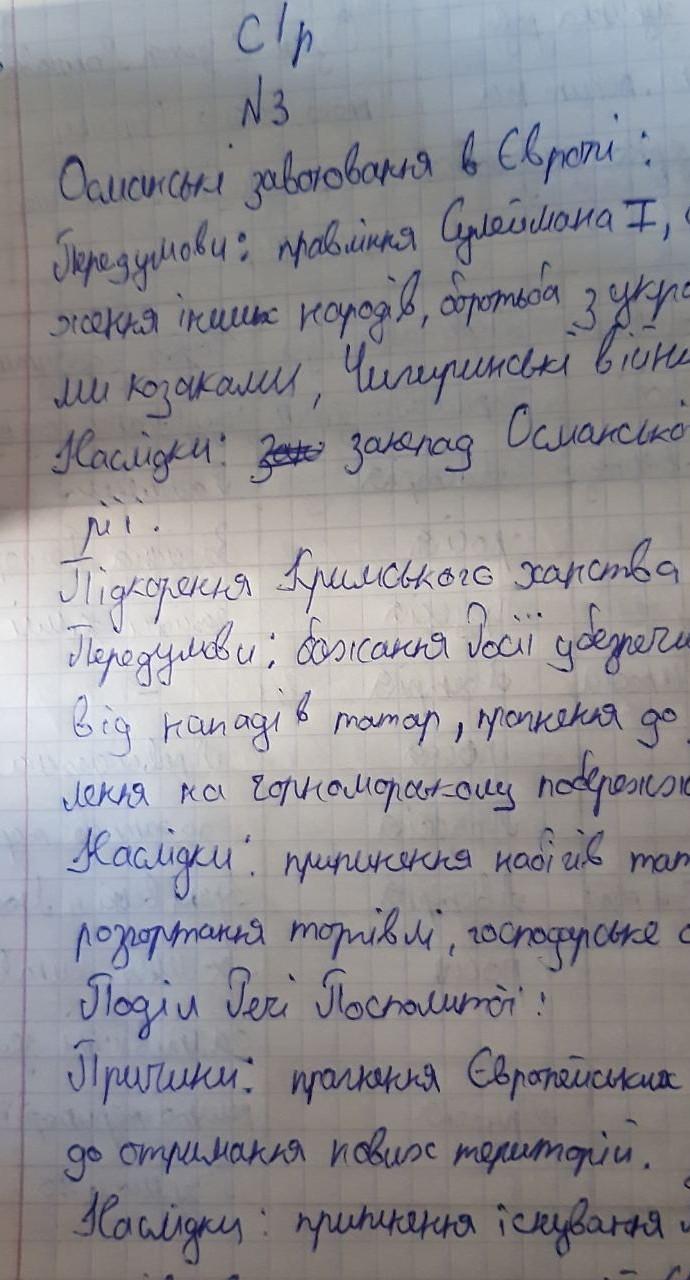 С/р
№3
Османські завоювання в Європі:
Передумови: правління Сулеймана I,
ження інших народів, боротьба з укра
ми козаками, Чигиринські війни
Наслідки: занепад Османсько
рії.
Підкорення Кримського ханства
Передумови: бажання Росії убезпечи
від нападів татар, прагнення до
лення на чорноморському побережж
Наслідки: припинення набігів тат
розгортання торгівлі, господарське о
Поділ Речі Посполитої:
Причини: прагнення Європейських
до отримання нових територій.
Наслідки: припинення існування